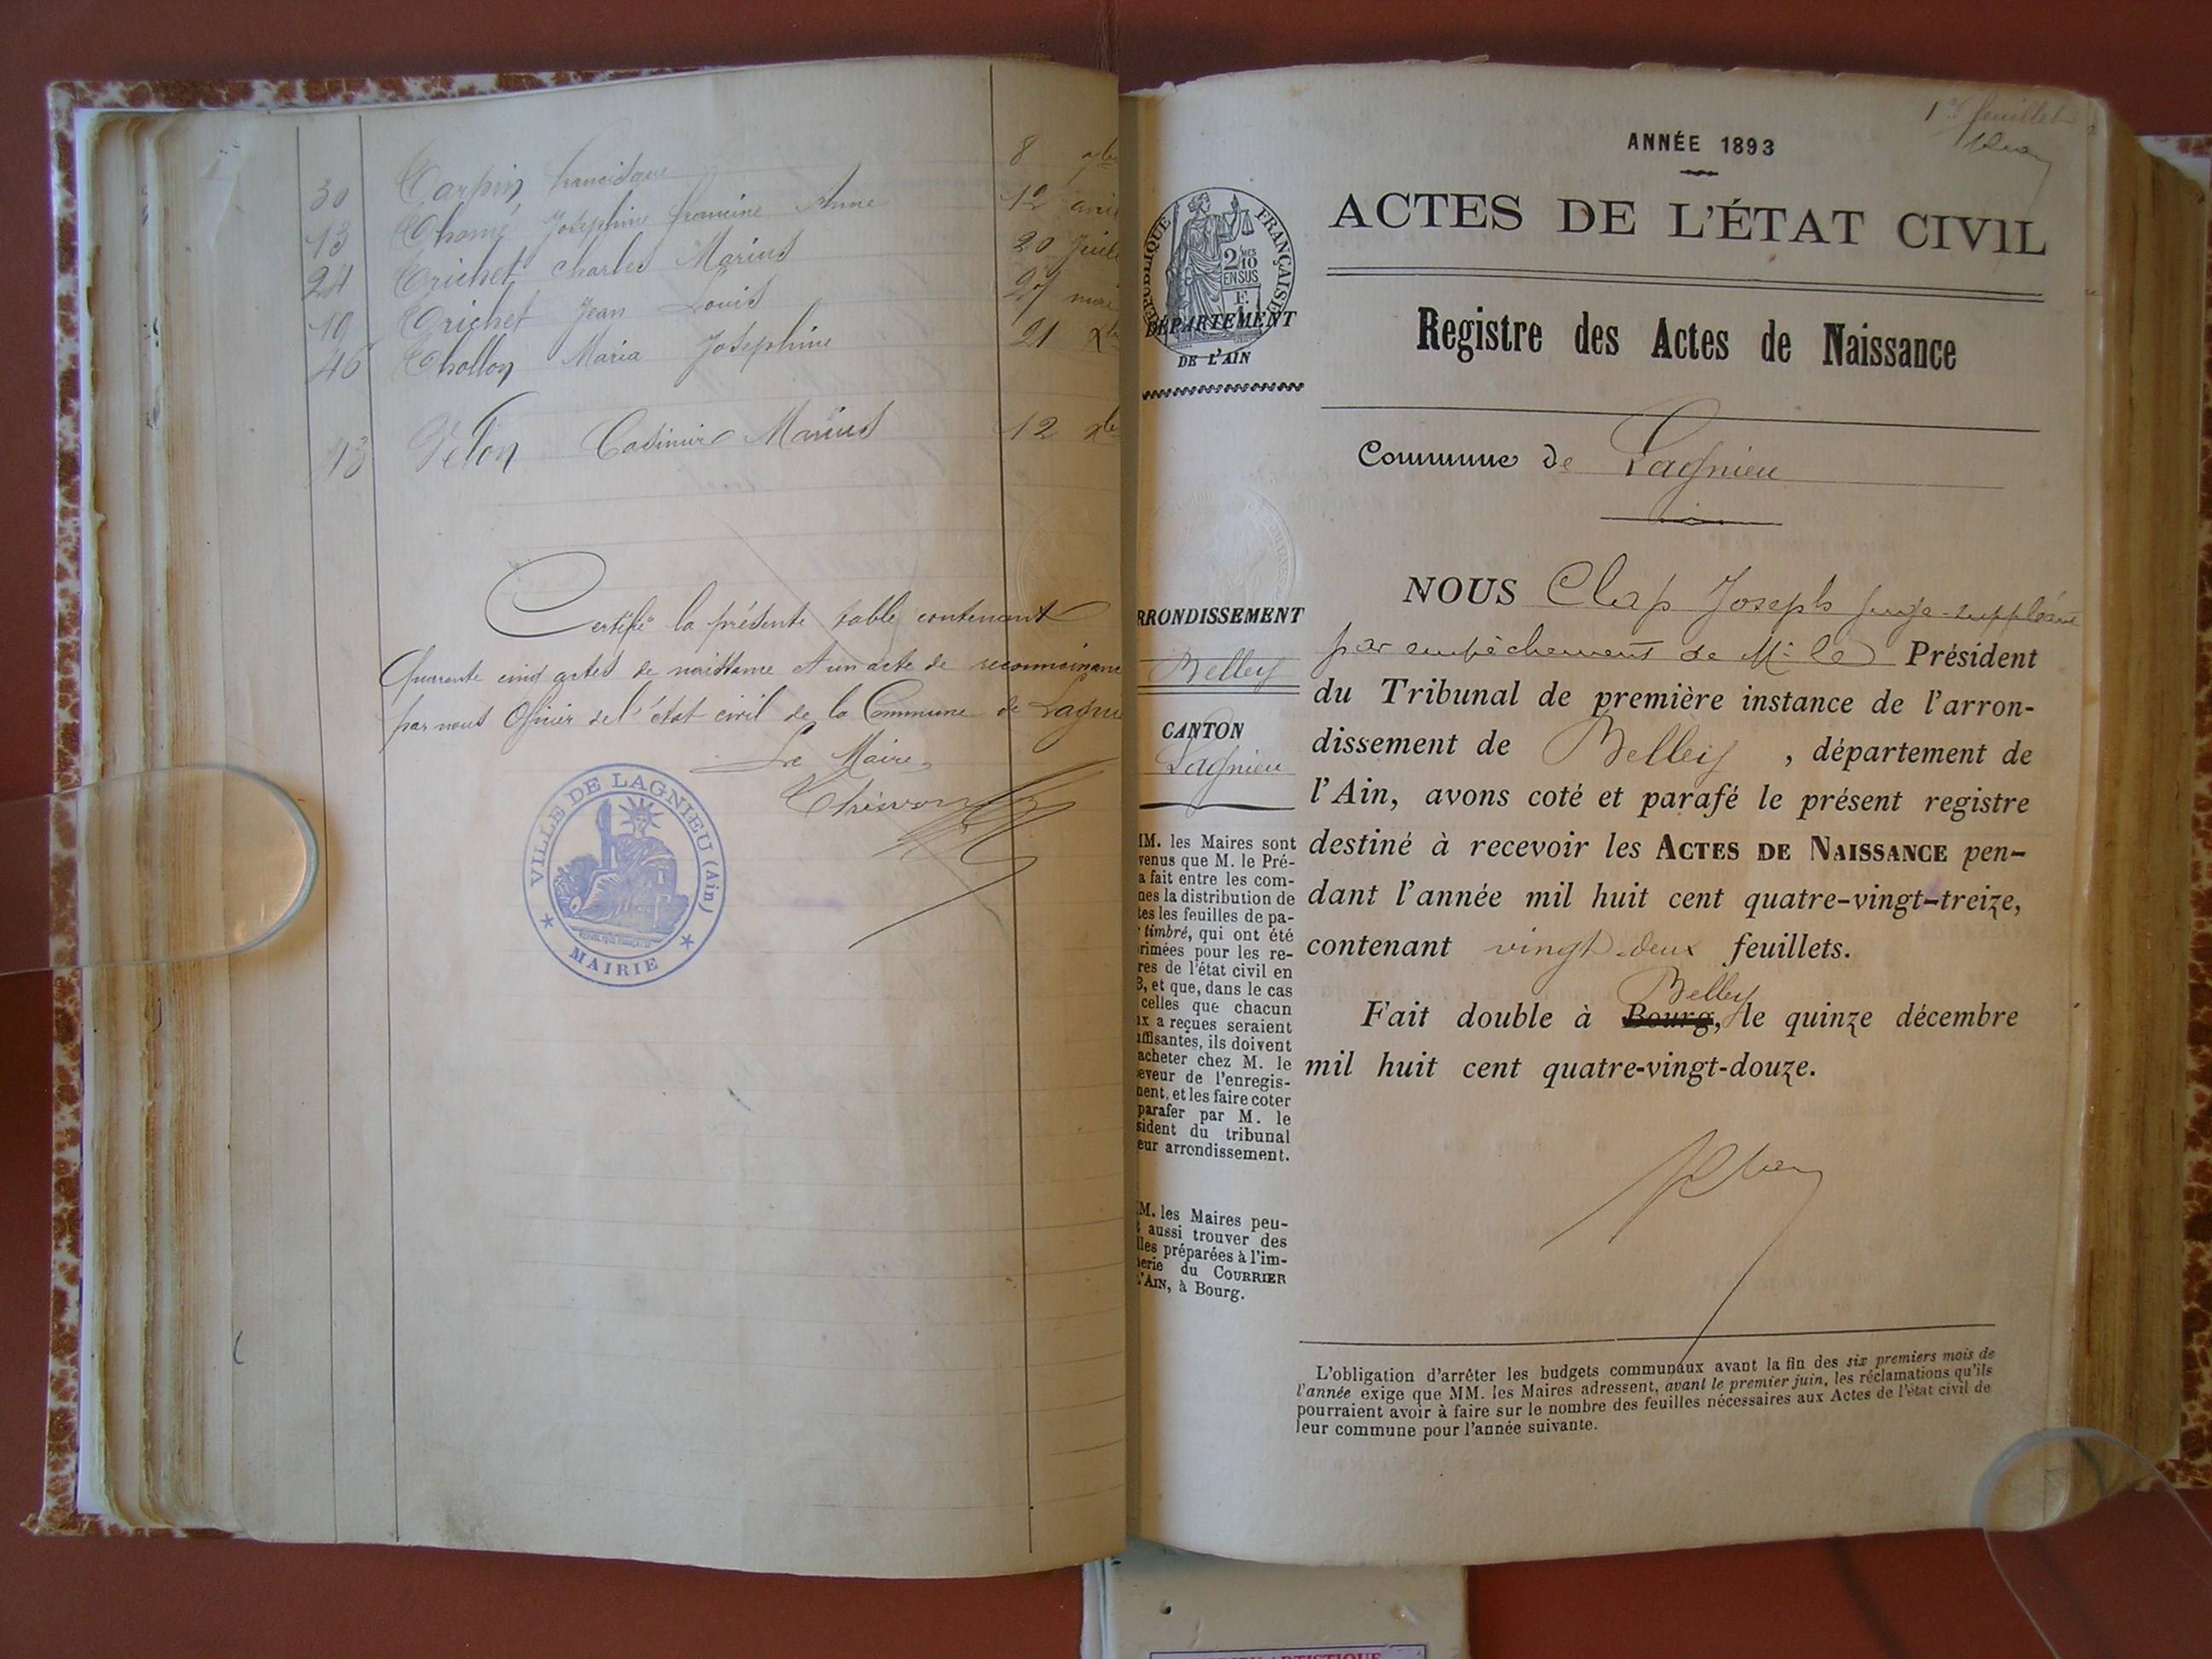 30 Carpin Francisque 8 7bre
13 Thomé Josephine Francine Anne 12 avril
24 Trichet Charles Marius 20 Juil
19 Trichet Jean Louis 27 mai
46 Thollon Maria Josephine 21 Xbre
43 Veton Casimir Marius 12 Xbre
Certifié la présente table contenant
Quarante cinq actes de naissance et un acte de reconnaissance
par nous Officier de l'état civil de la Commune de Lagnieu
Le Maire
VILLE DE LAGNIEU (Ain)
MAIRIE
1er feuillet
ANNÉE 1893
ACTES DE L'ÉTAT CIVIL
Registre des Actes de Naissance
RÉPUBLIQUE FRANÇAISE
2/10
EN SUS
DÉPARTEMENT
DE L'AIN
Commune de Lagnieu
RRONDISSEMENT
Belley
CANTON
Lagnieu
NOUS Clap Joseph juge-suppléant
par empêchement de Mr le Président
du Tribunal de première instance de l'arron-
dissement de Belley, département de
l'Ain, avons coté et parafé le présent registre
destiné à recevoir les ACTES DE NAISSANCE pen-
dant l'année mil huit cent quatre-vingt-treize,
contenant vingt-deux feuillets.
Belley
Fait double à Bourg, le quinze décembre
mil huit cent quatre-vingt-douze.
MM. les Maires sont
venus que M. le Pré-
a fait entre les com-
nes la distribution de
tes les feuilles de pa-
timbré, qui ont été
rimées pour les re-
res de l'état civil en
3, et que, dans le cas
celles que chacun
ux a reçues seraient
uffisantes, ils doivent
acheter chez M. le
eveur de l'enregis-
ment, et les faire coter
parafer par M. le
sident du tribunal
eur arrondissement.
M. les Maires peu-
t aussi trouver des
lles préparées à l'im-
erie du COURRIER
'AIN, à Bourg.
L'obligation d'arrêter les budgets communaux avant la fin des six premiers mois de
l'année exige que MM. les Maires adressent, avant le premier juin, les réclamations qu'ils
pourraient avoir à faire sur le nombre des feuilles nécessaires aux Actes de l'état civil de
leur commune pour l'année suivante.